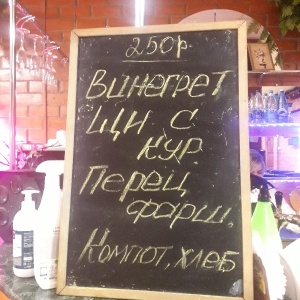 250р
Винегрет
Щи с
кур
Перец
фарш.
Компот, хлеб